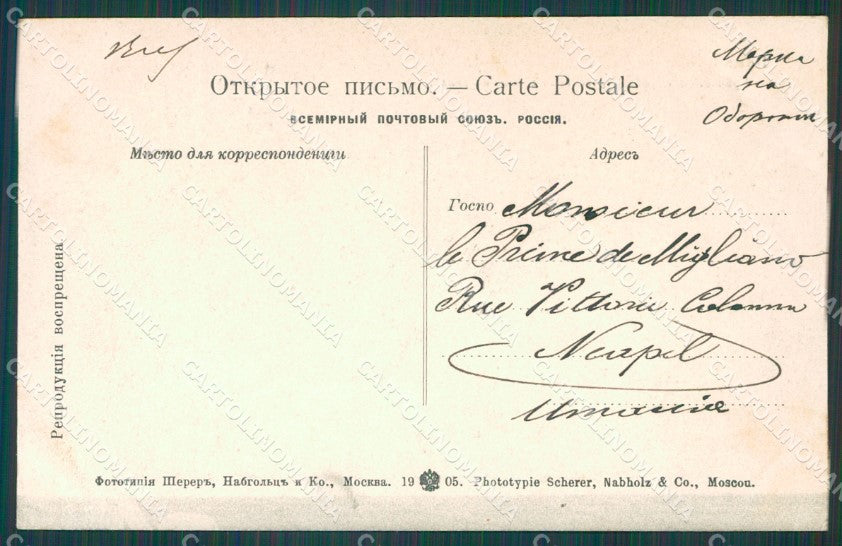 Марка
на
Оборотѣ
Открытое письмо. — Carte Postale
ВСЕМІРНЫЙ ПОЧТОВЫЙ СОЮЗЪ. РОССІЯ.
Мѣсто для корреспонденціи
Адресъ
Госпо Monsieur
le Prince de Migliano
Rue Vittoria Colonna
Neapel
Италія
Репродукція воспрещена
Фототипія Шереръ, Набгольцъ и Ко., Москва. 19 05. Phototypie Scherer, Nabholz & Co., Moscou.
CARTOLINOMANIA